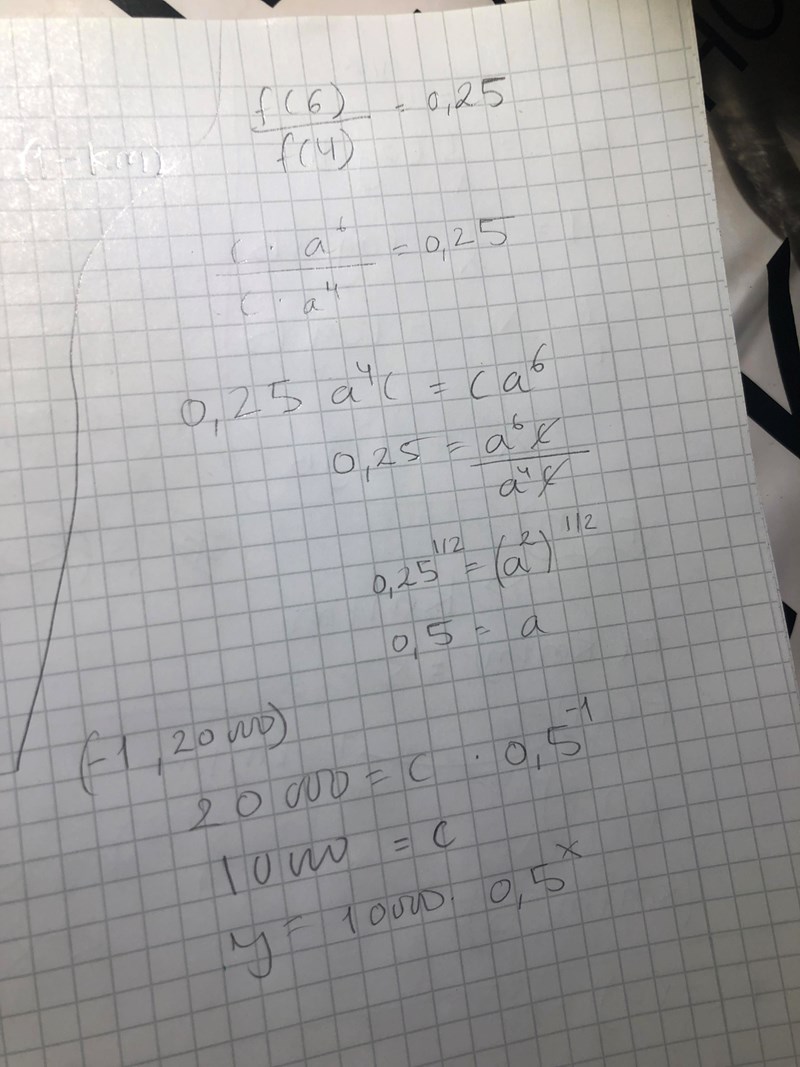 f(6)
/ f(4) = 0,25
c · a^6 / c · a^4 = 0,25
0,25 a^4c = ca^6
0,25 = a^6c / a^4c
0,25^1/2 = (a^2)^1/2
0,5 = a
(-1, 20000)
20000 = c · 0,5^-1
10000 = c
y = 10000 · 0,5^x